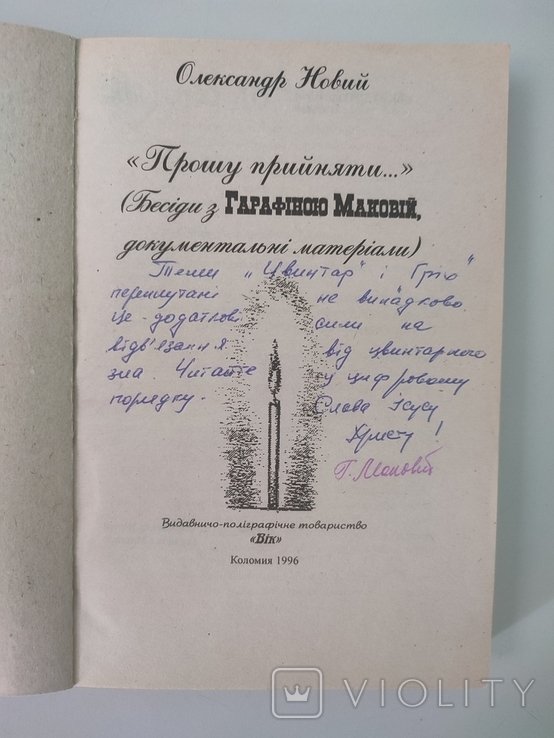 Олександр Новий
«Прошу прийняти...»
(Бесіди з ГАРАФІНОЮ МАКОВІЙ,
документальні матеріали)
Теми „Цвинтар" і „Гріх"
переплутані не випадково
це - додаткові сили на
відв'язання від цвинтарного
зла. Читайте у цифровому
порядку. Слава Ісусу
Христу!
Г. Маковій
Видавничо-поліграфічне товариство
«Вік»
Коломия 1996
VIOLITY